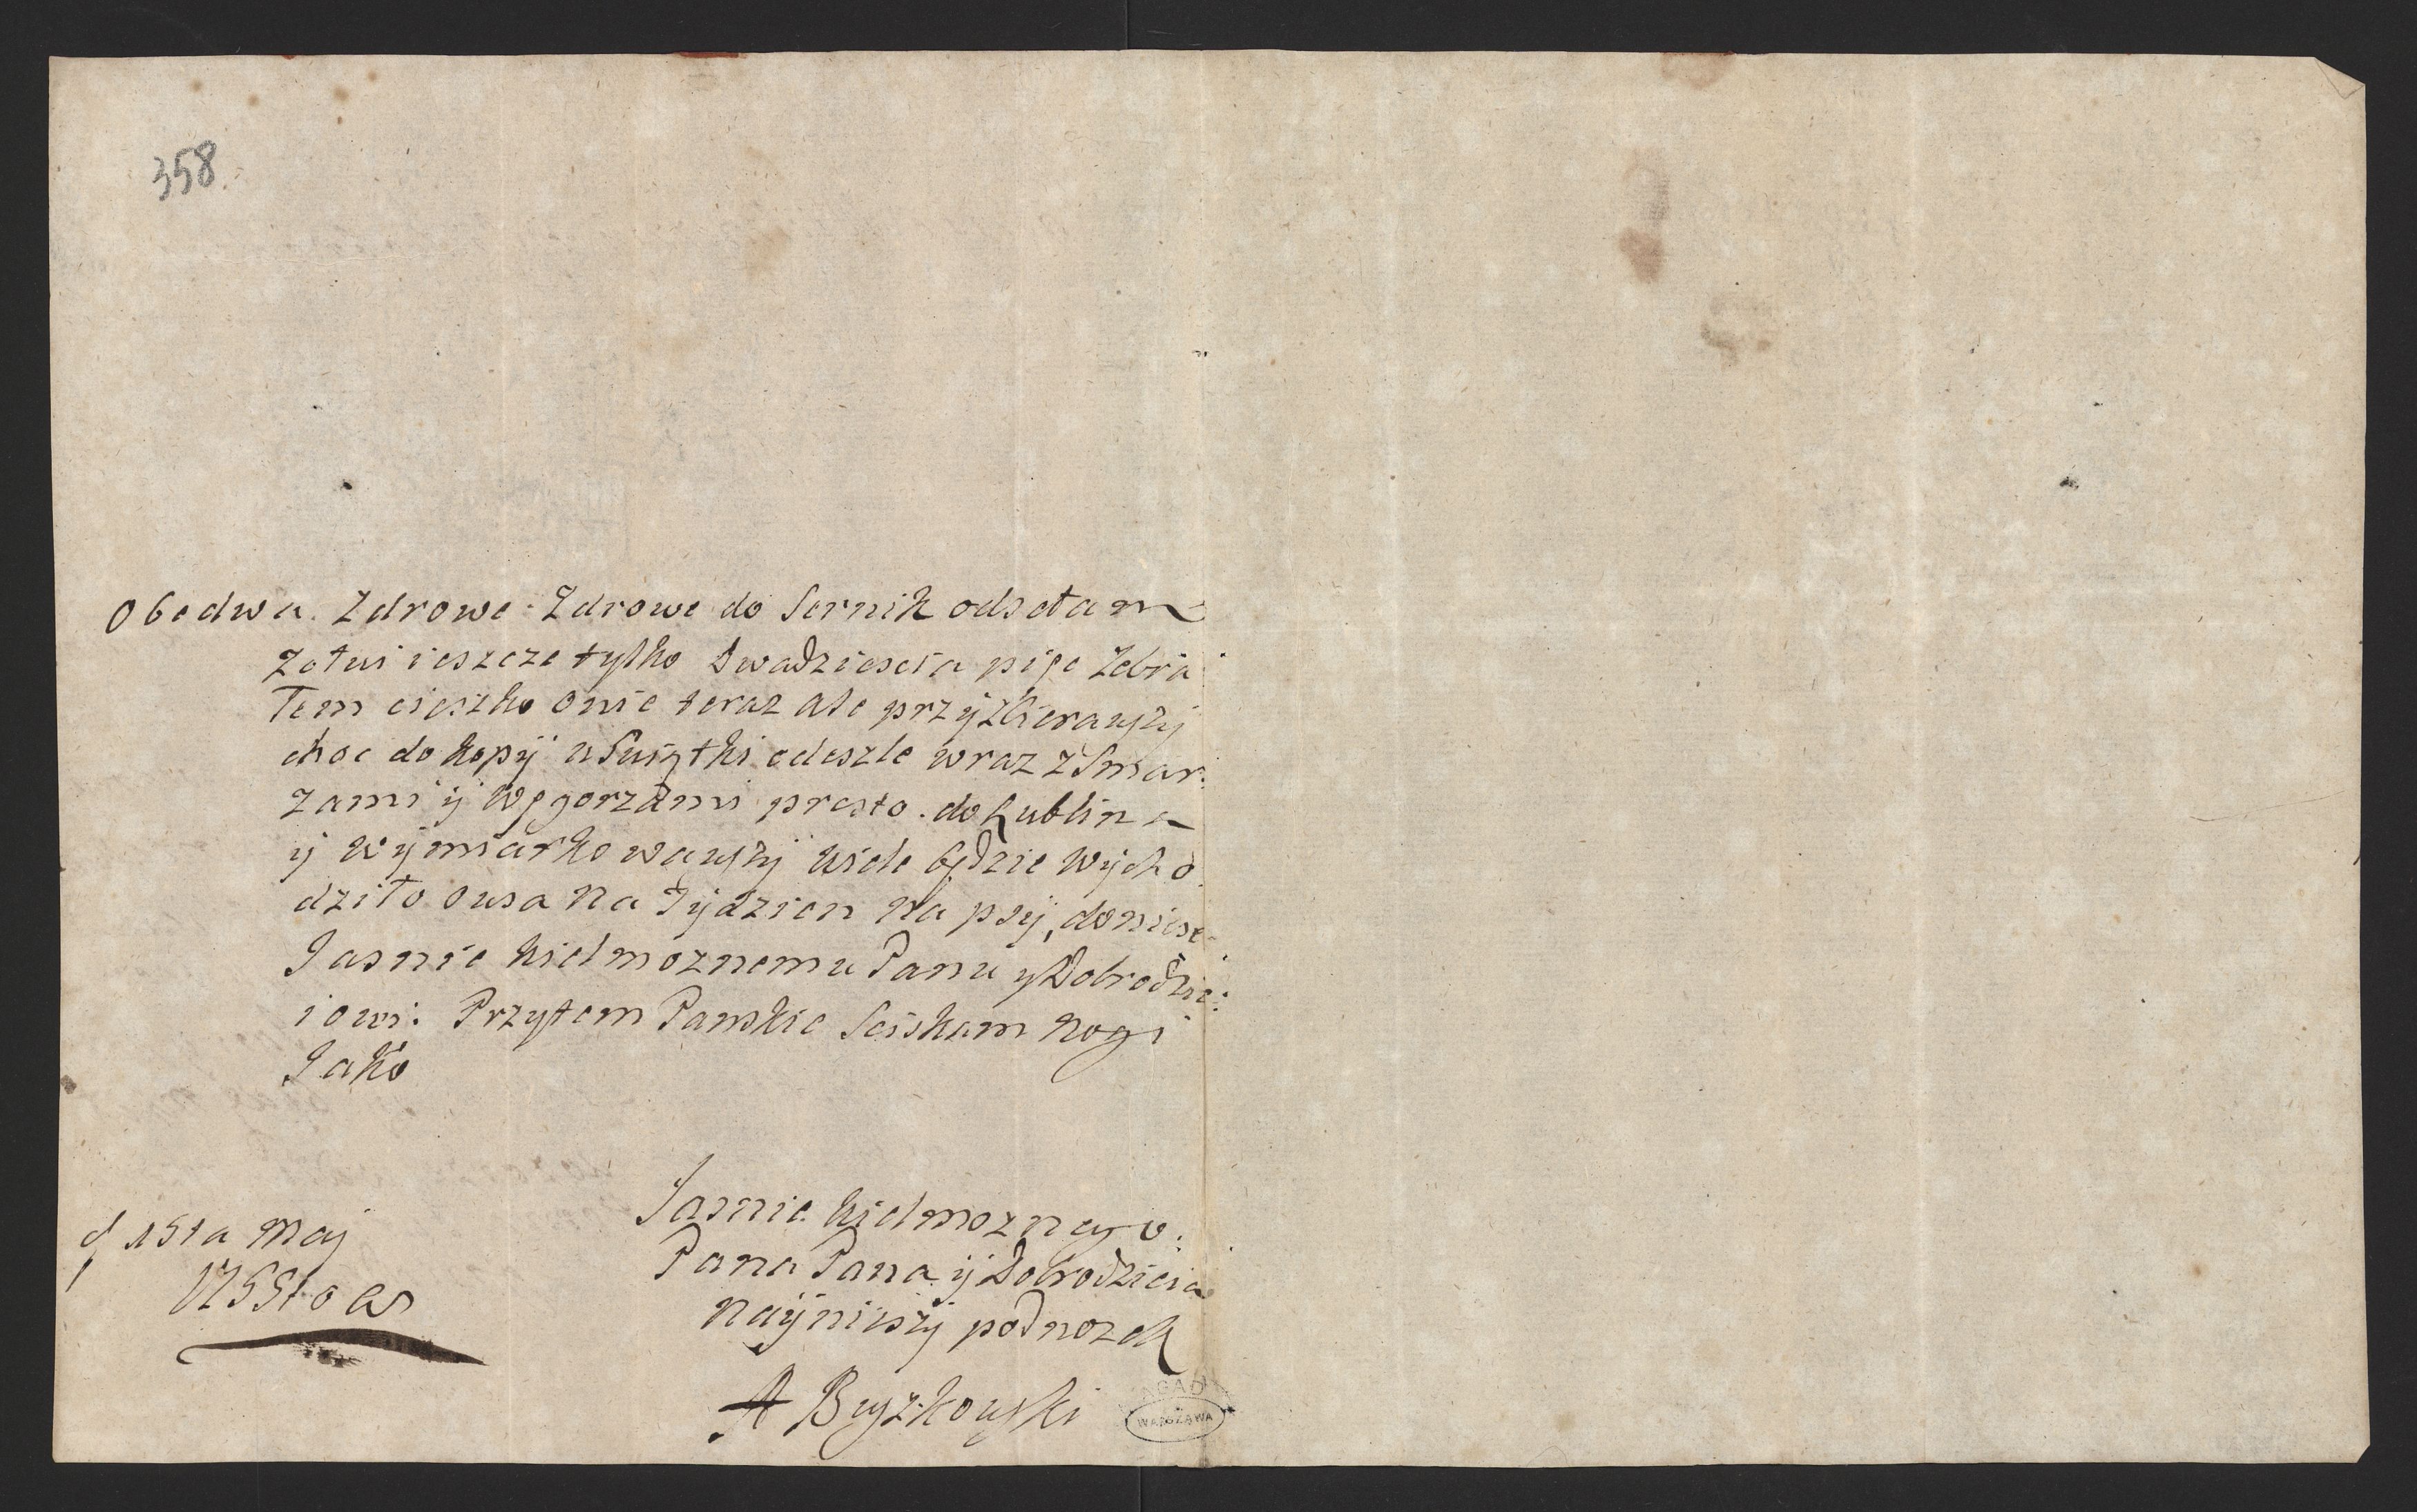 358
Obedwa. Zdrowe Zdrowe do Sernik odsełam
Zołwi ieszcze tylko dwadziescia pięc Zebra
łem cieszko onie teraz ale przyzbierawszy
choc do kopy wszystki odeszle wraz z Smar:
zami y Węgorzami presto. do Lublina
y wymiarkowawszy wiele będzie wycho
dziło owsa na Tydzien na psy, doniese
Jasnie Wielmoznemu Panu y Dobrodzie:
iowi: Przytem Panskie Sciskam Nogi
Jako
Jasnie Wielmoznego.
Pana Pana y Dobrodzieia
Nayniszy podnozek
A Buyzkowski
d 15ta Maj
AGAD
WARSZAWA